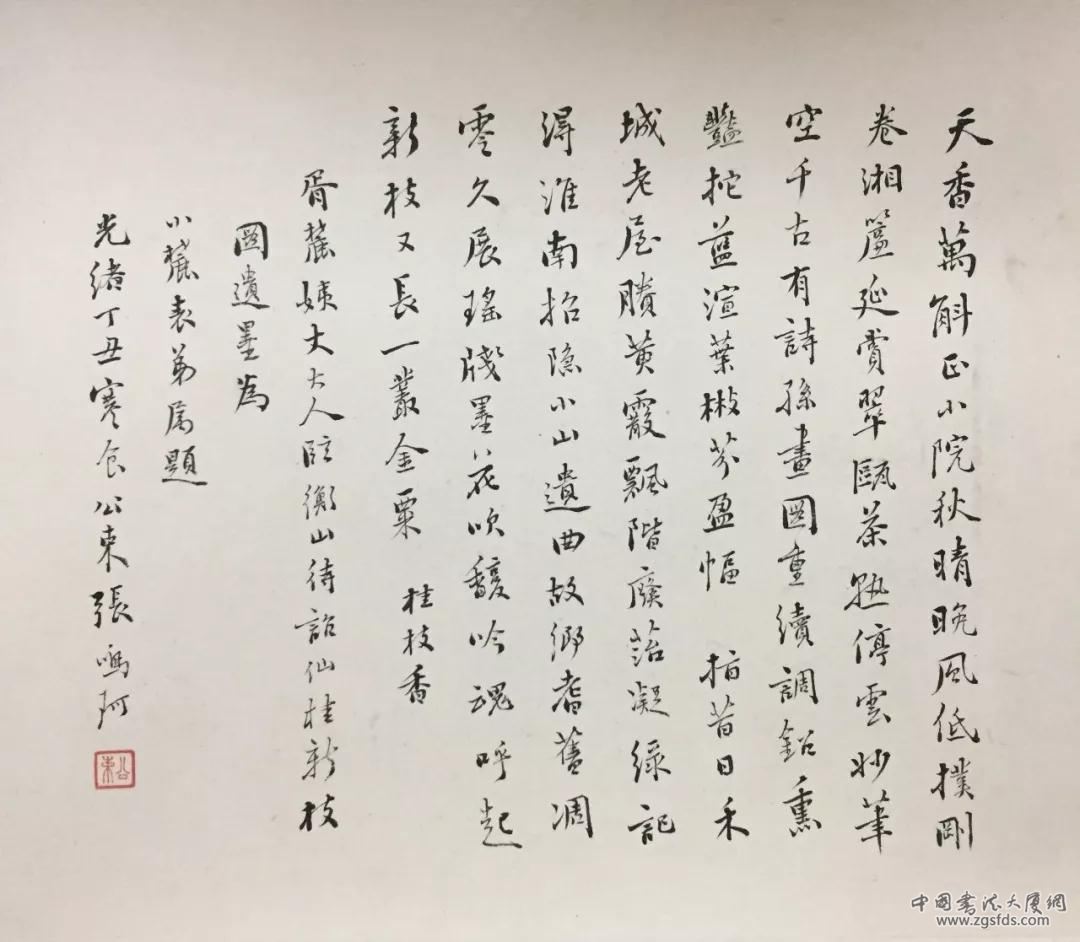 天香萬斛正小院秋晴晚風低撲剛
卷湘簾延賞翠甌茶熟停雲妙筆
空千古有詩孫畫圖重續調鉛熏
豔挖藍渲葉楸芬盈幅 指昔日禾
城老屋賸黃霰飄階廢菭凝綠記
淂淮南招隐小山遺曲故鄉耆舊凋
零久展瑤牋墨花吹馥吟魂呼起
新枝又長一叢金粟 桂枝香
胥麓姨丈大人臨衡山待詔仙桂新枝
圖遺墨為
小麓表弟属題
光緒丁丑寒食公束張鳴珂
公束
中國書法大厦網
www.zgsfds.com